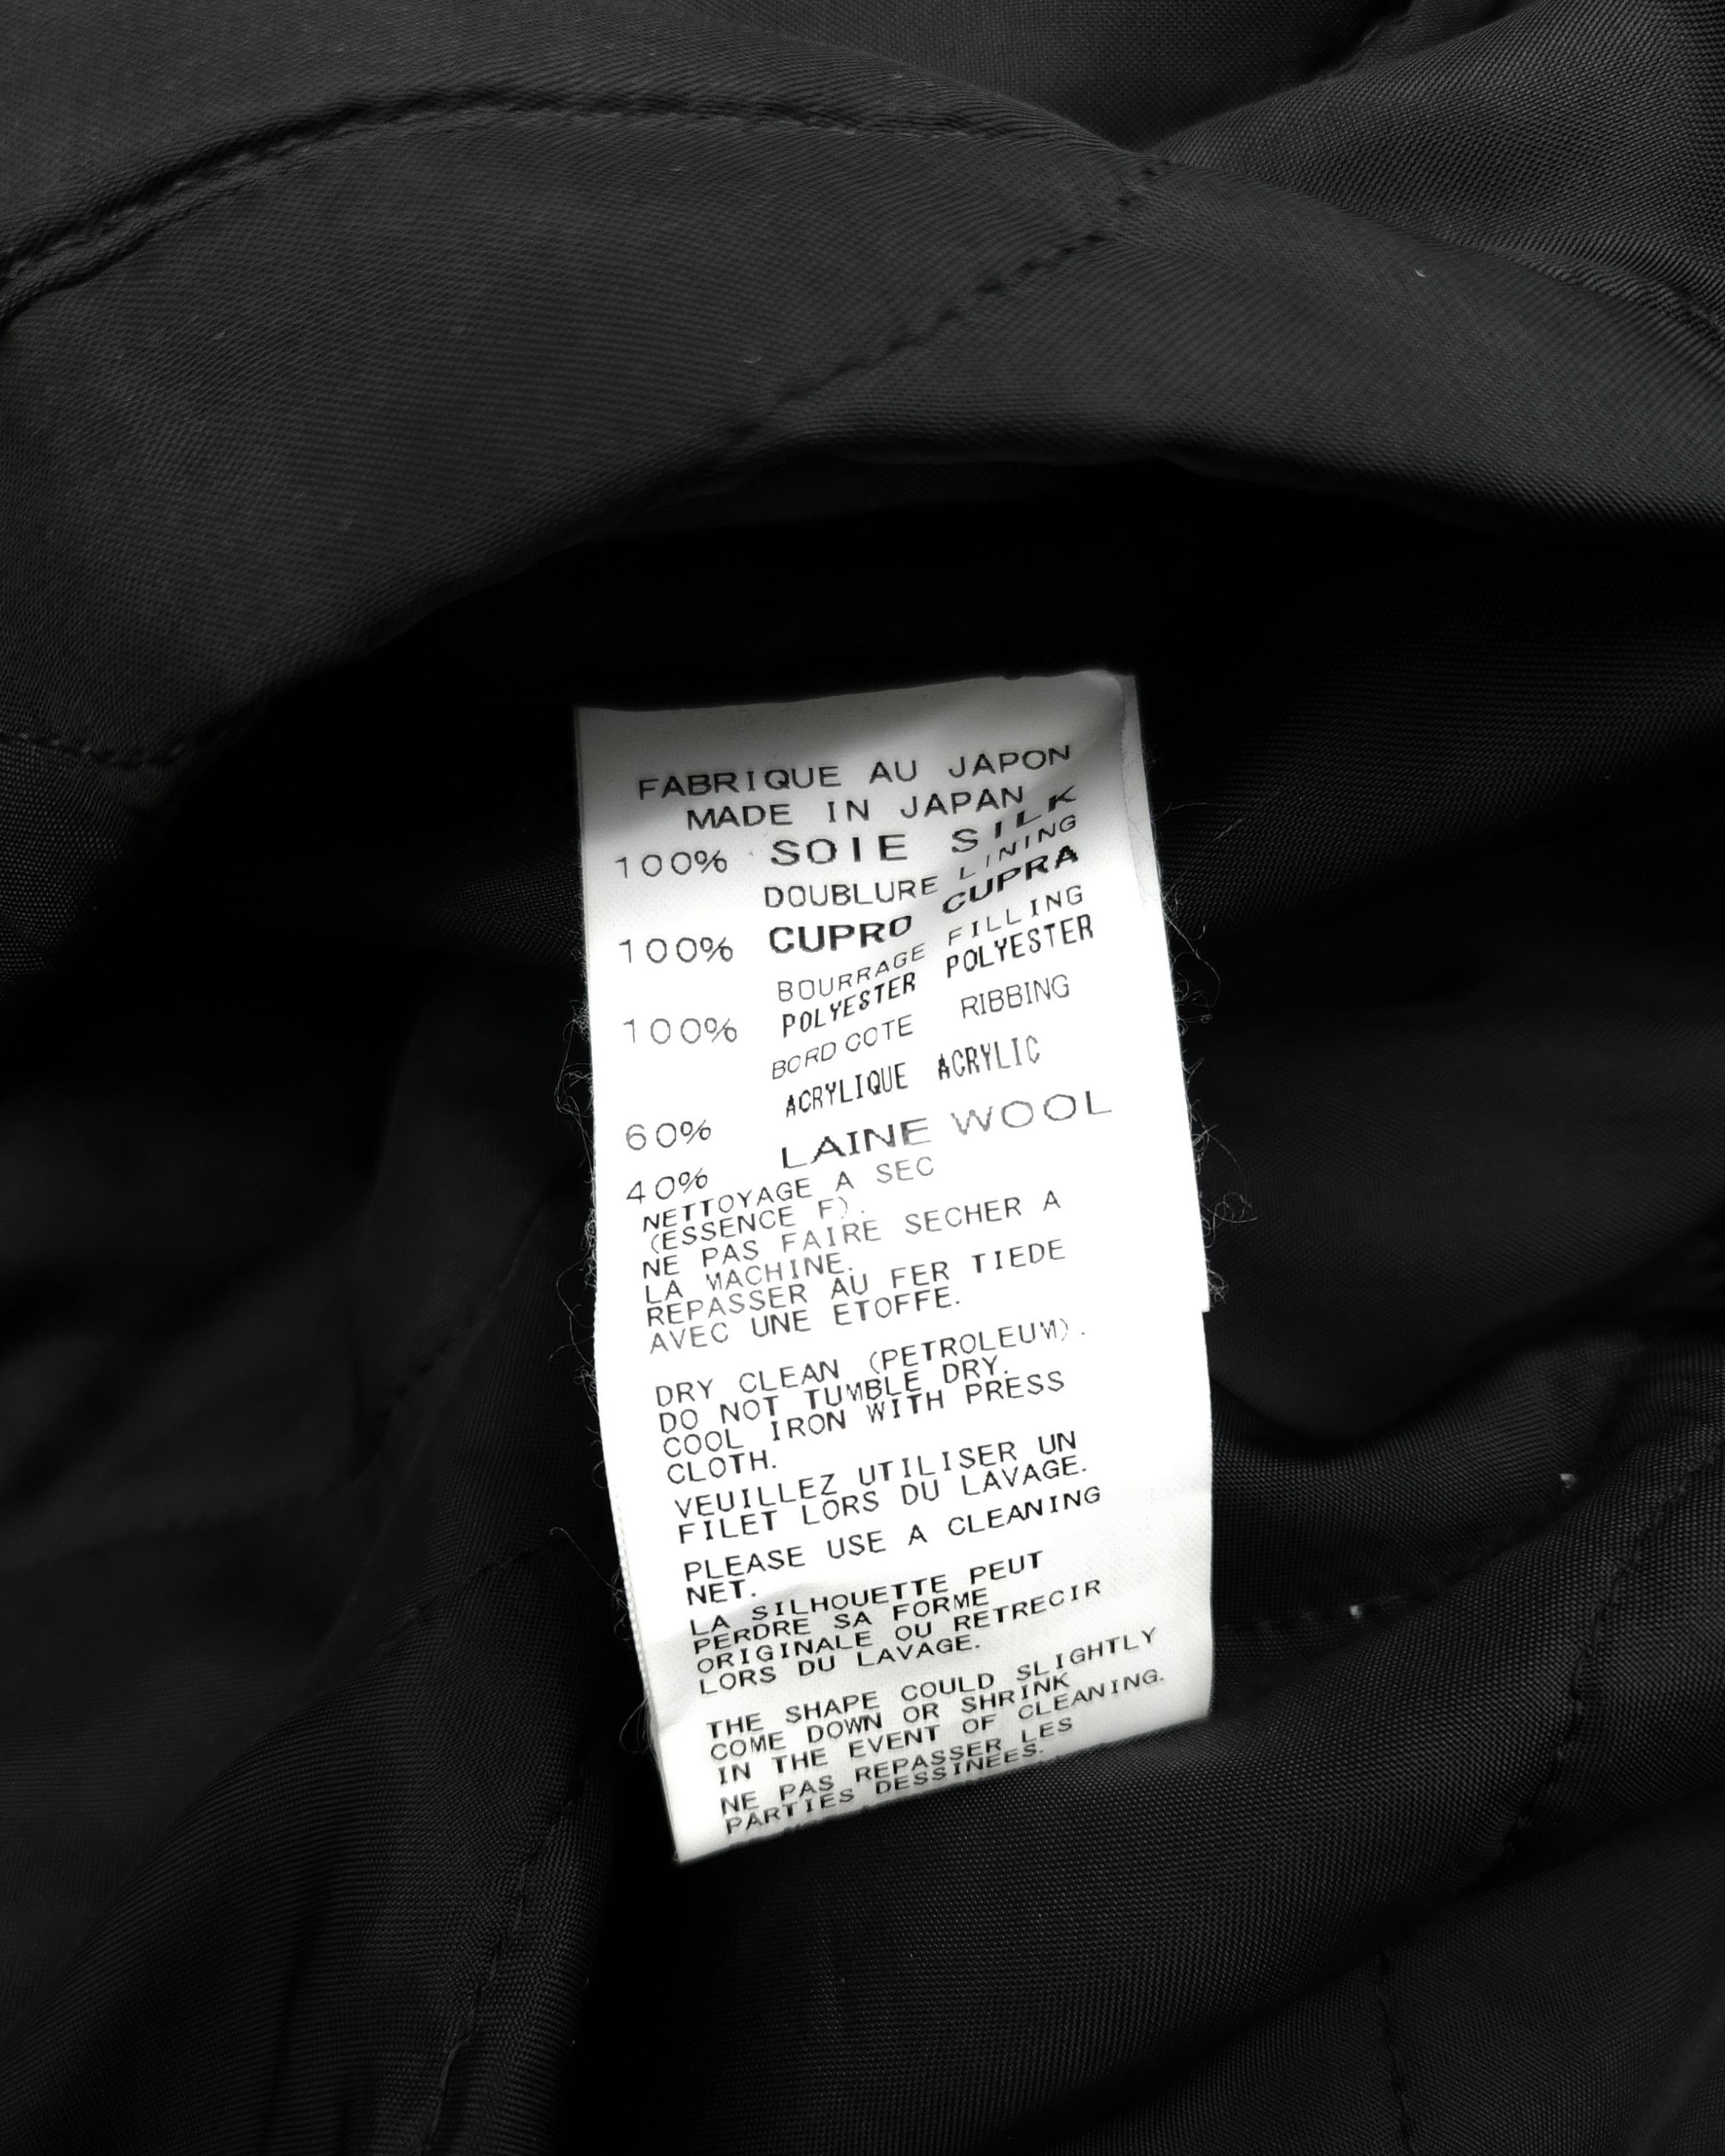 FABRIQUE AU JAPON
MADE IN JAPAN
100% SOIE SILK
DOUBLURE LINING
100% CUPRO CUPRA
BOURRAGE FILLING
100% POLYESTER POLYESTER
BORD COTE RIBBING
60% ACRYLIQUE ACRYLIC
40% LAINE WOOL
NETTOYAGE A SEC
(ESSENCE F).
NE PAS FAIRE SECHER A
LA MACHINE.
REPASSER AU FER TIEDE
AVEC UNE ETOFFE.
DRY CLEAN (PETROLEUM).
DO NOT TUMBLE DRY.
COOL IRON WITH PRESS
CLOTH.
VEUILLEZ UTILISER UN
FILET LORS DU LAVAGE.
PLEASE USE A CLEANING
NET.
LA SILHOUETTE PEUT
PERDRE SA FORME
ORIGINALE OU RETRECIR
LORS DU LAVAGE.
THE SHAPE COULD SLIGHTLY
COME DOWN OR SHRINK
IN THE EVENT OF CLEANING.
NE PAS REPASSER LES
PARTIES DESSINEES.